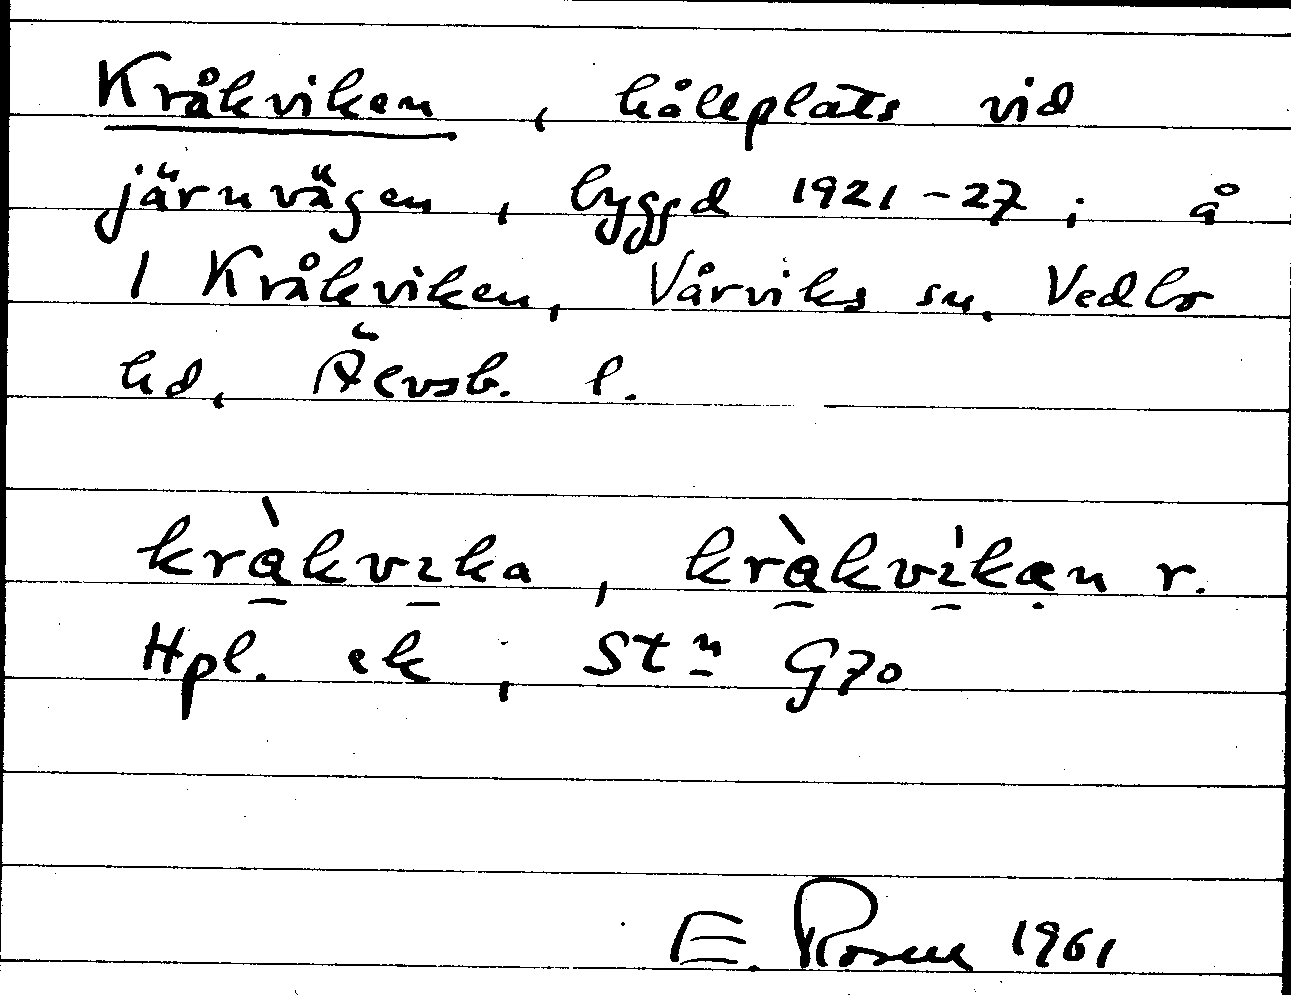 Kråkviken, hållplats vid
järnvägen, byggd 1921-27; å
1 Kråkviken, Vårviks sn, Vedbo
hd, Älvsb. l.
kràkvika, kràkvikan r.
Hpl. ek; Stn G70
E. Rosell 1961